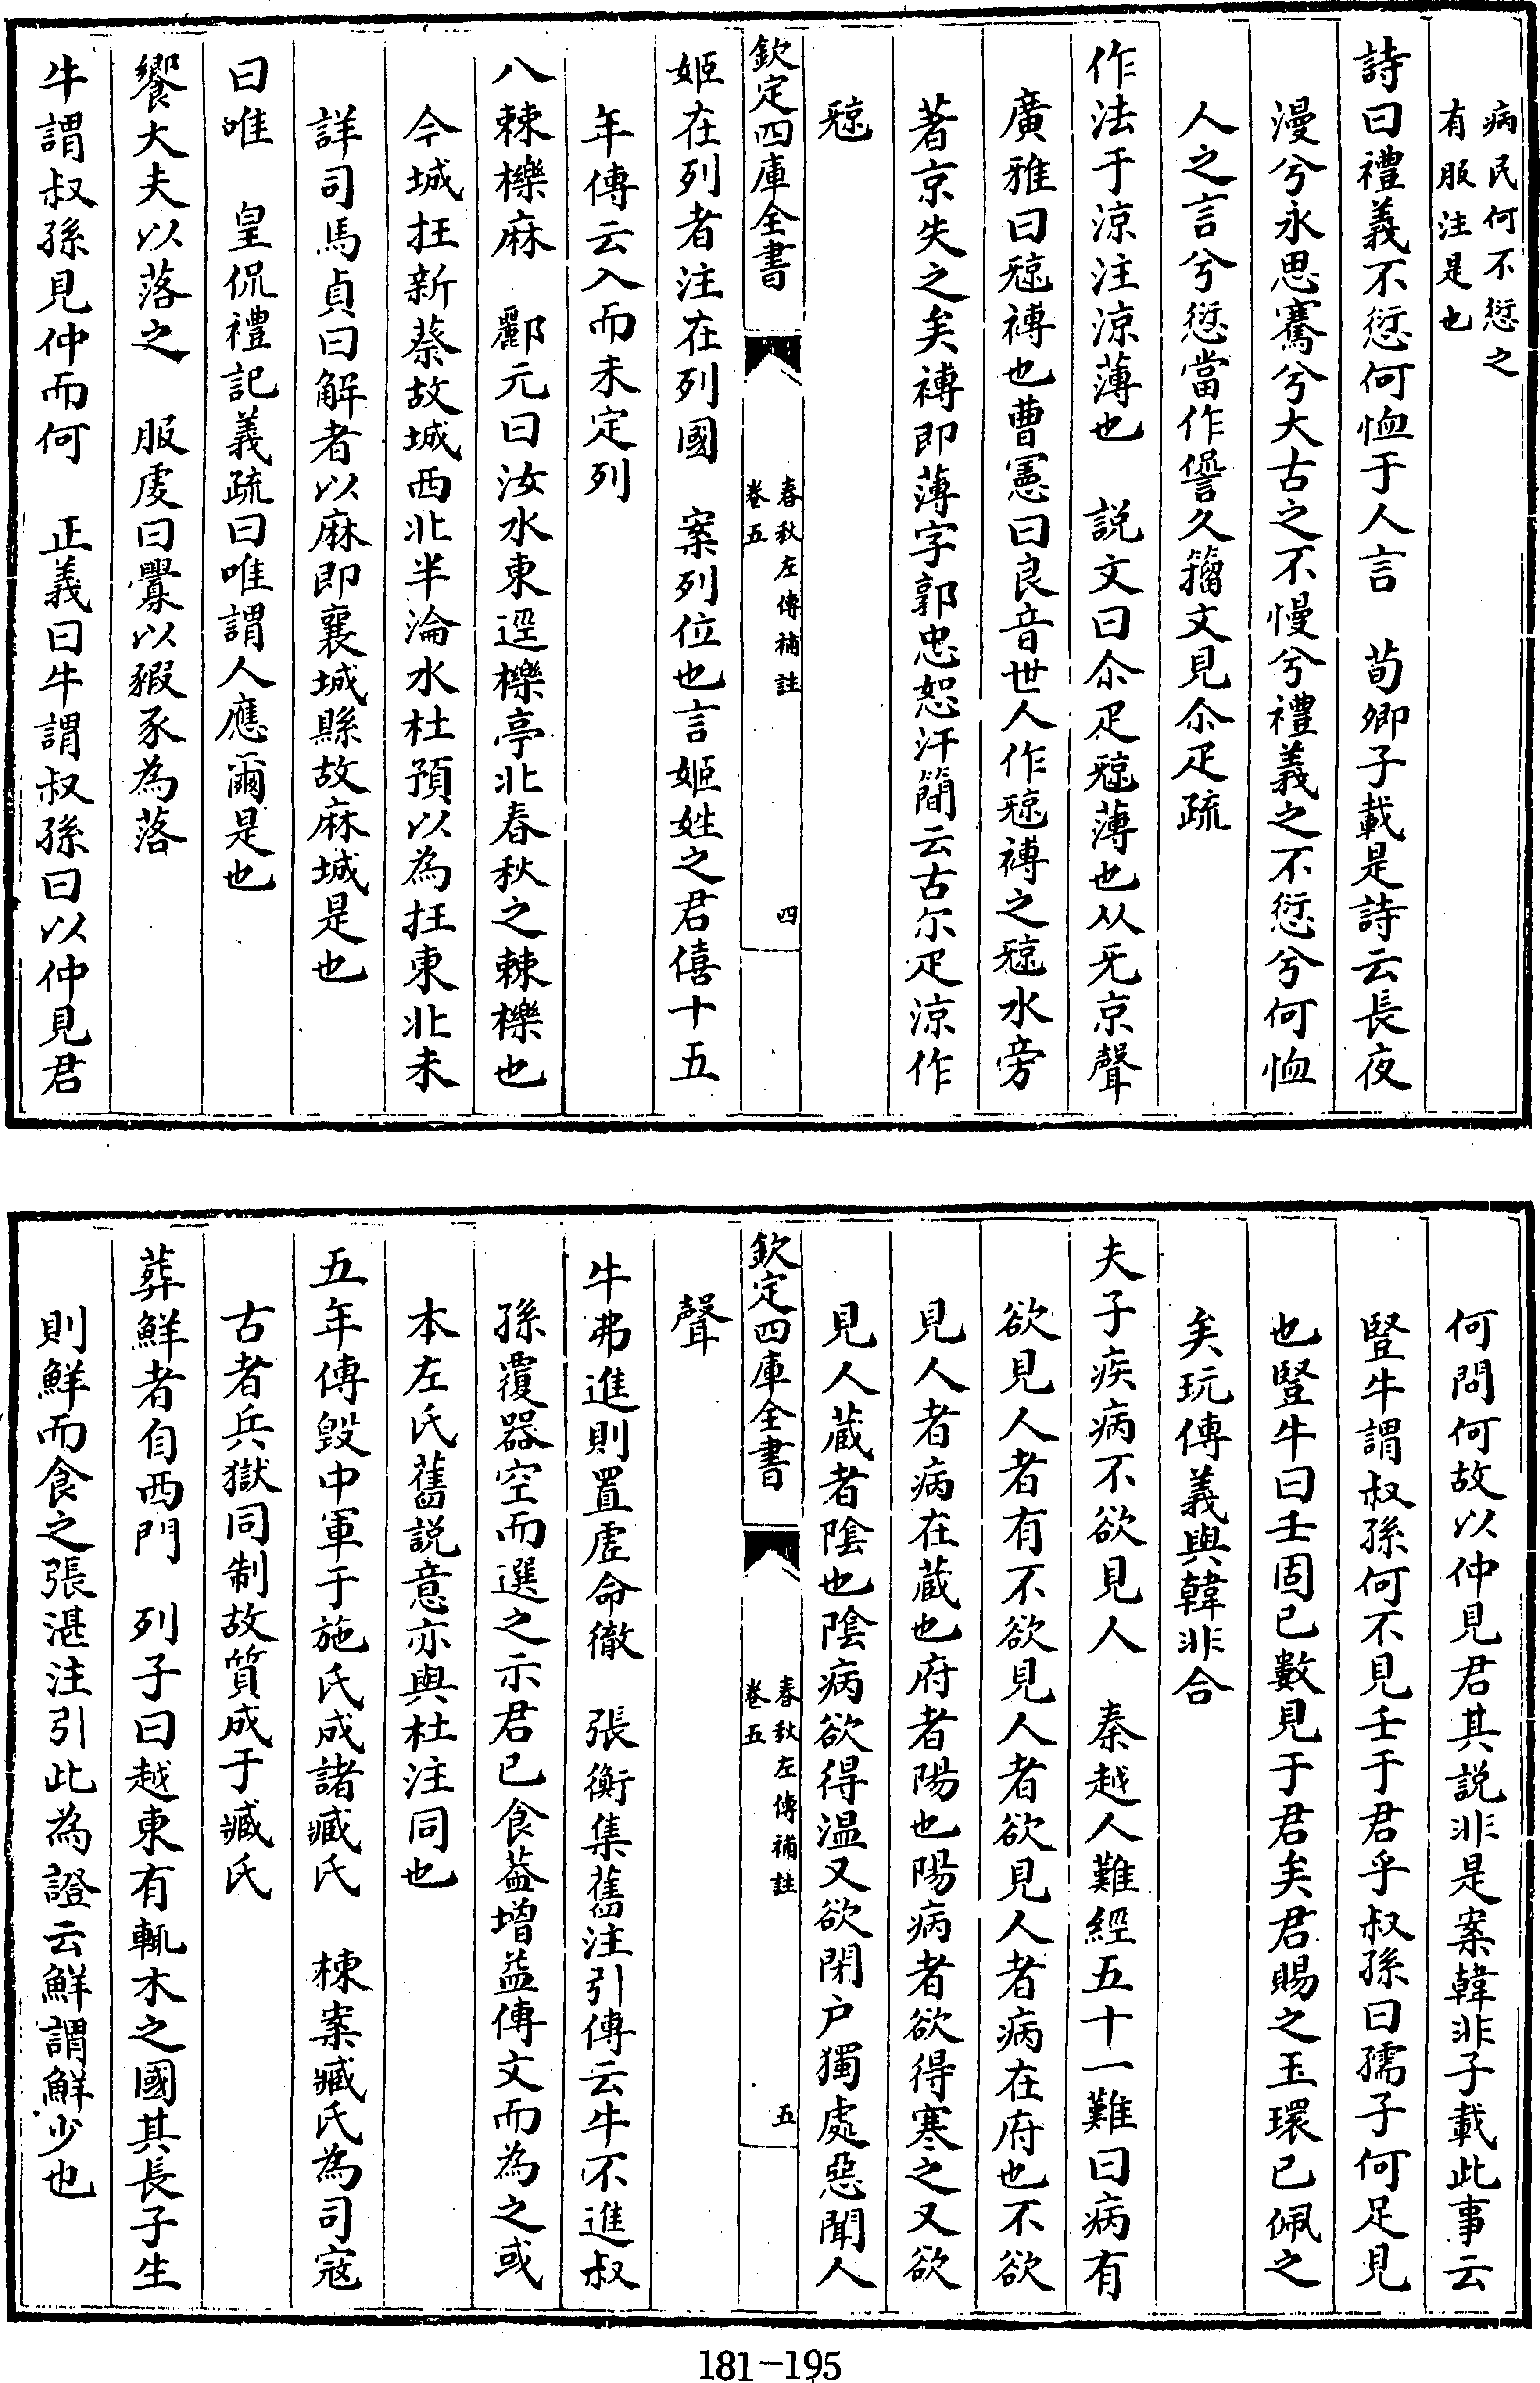 病民何不愆之
有服注是也
詩曰禮義不愆何恤于人言　荀卿子載是詩云長夜
漫兮永思騫兮大古之不慢兮禮義之不愆兮何恤
人之言兮愆當作諐久籀文見尒疋疏
作法于涼注涼薄也　説文曰尒疋𤘉薄也从旡京聲
廣雅曰𤘉禣也曹憲曰良音世人作𤘉禣之𤘉水旁
著京失之矣禣即薄字郭忠恕汗簡云古尔疋涼作
𤘉
欽定四庫全書
春秋左傳補註
卷五
四
姬在列者注在列國　案列位也言姬姓之君僖十五
年傳云入而未定列
八棘櫟麻　酈元曰汝水東逕櫟亭北春秋之棘櫟也
今城在新蔡故城西北半淪水杜預以為在東北未
詳司馬貞曰解者以麻即襄城縣故麻城是也
曰唯　皇侃禮記義疏曰唯謂人應爾是也
饗大夫以落之　服虔曰釁以豭豕為落
牛謂叔孫見仲而何　正義曰牛謂叔孫曰以仲見君
何問何故以仲見君其説非是案韓非子載此事云
豎牛謂叔孫何不見壬于君乎叔孫曰孺子何足見
也豎牛曰壬固已數見于君矣君賜之玉環已佩之
矣玩傳義與韓非合
夫子疾病不欲見人　秦越人難經五十一難曰病有
欲見人者有不欲見人者欲見人者病在府也不欲
見人者病在蔵也府者陽也陽病者欲得寒之又欲
見人蔵者陰也陰病欲得温又欲閉户獨處惡聞人
欽定四庫全書
春秋左傳補註
卷五
五
聲
牛弗進則置虛命徹　張衡集舊注引傳云牛不進叔
孫覆器空而選之示君已食葢增益傳文而為之或
本左氏舊説意亦與杜注同也
五年傳毁中軍于施氏成諸臧氏　棟案臧氏為司寇
古者兵獄同制故質成于臧氏
葬鮮者自西門　列子曰越東有輒木之國其長子生
則鮮而食之張湛注引此為證云鮮謂鮮少也
181-195